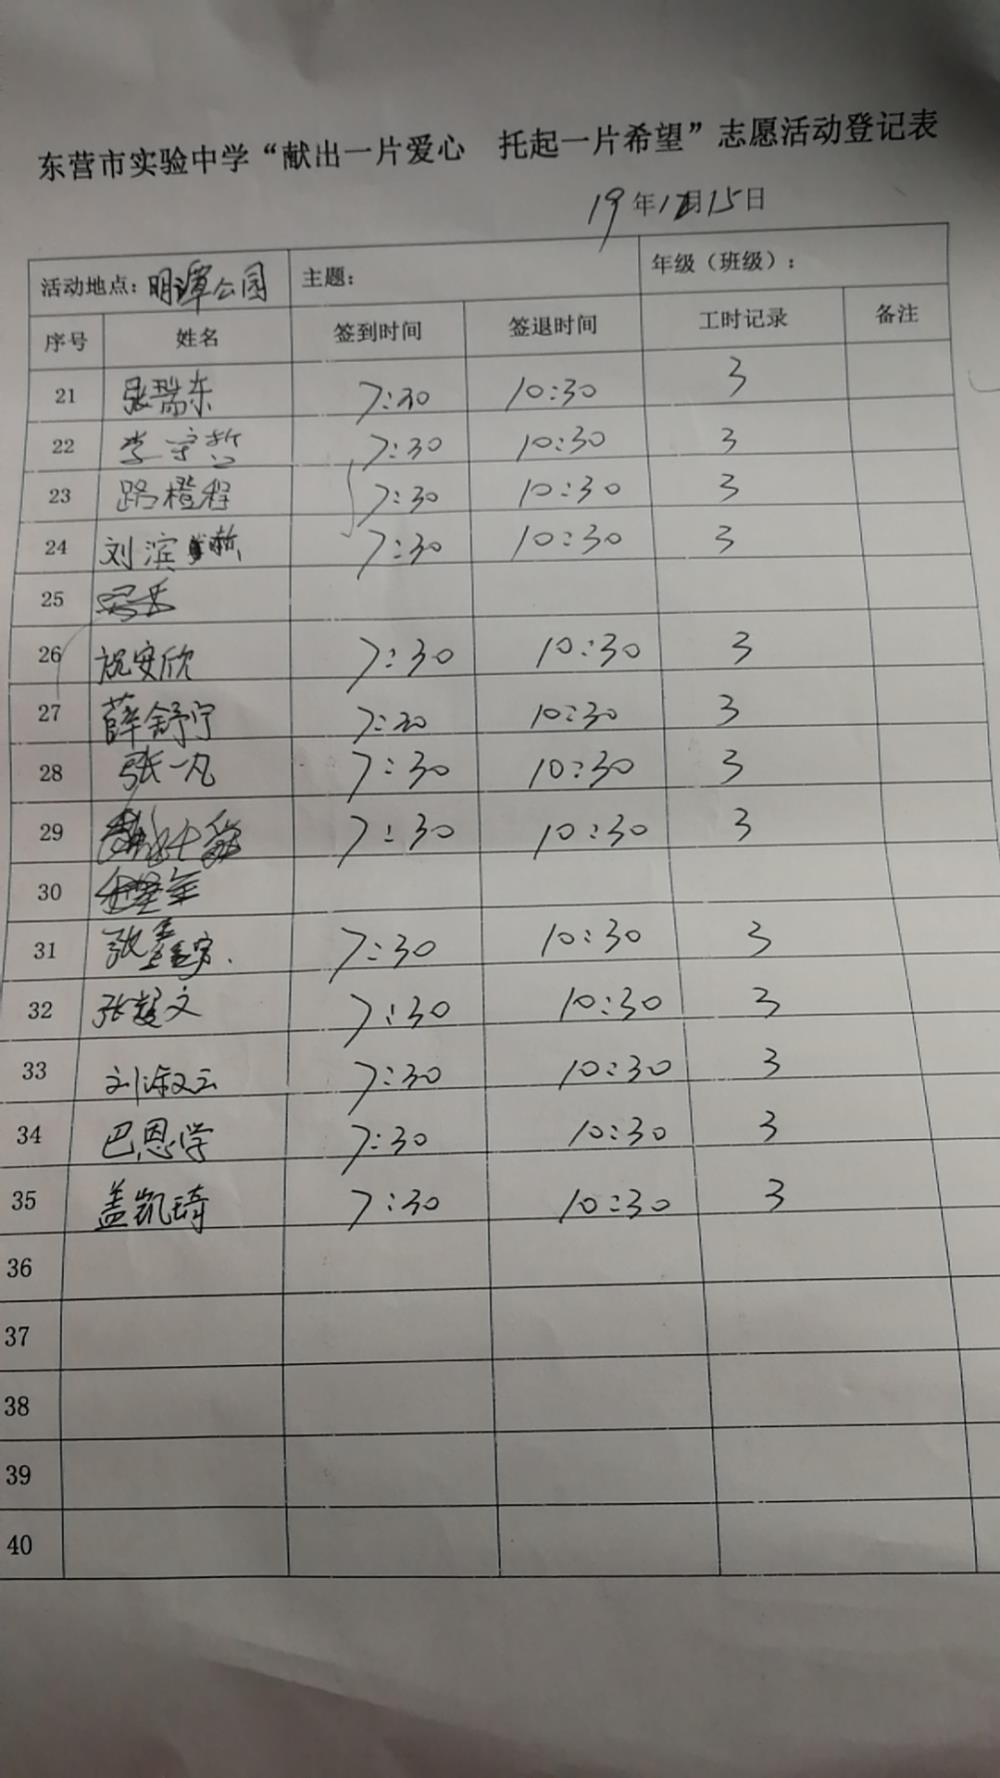 东营市实验中学“献出一片爱心 托起一片希望”志愿活动登记表
19年12月15日
活动地点：明潭公园 主题： 年级（班级）：
序号 姓名 签到时间 签退时间 工时记录 备注
21 张瑞东 7:30 10:30 3
22 李宗哲 7:30 10:30 3
23 路橙程 7:30 10:30 3
24 刘滨赫 7:30 10:30 3
25
26 祝安欣 7:30 10:30 3
27 薛舒宁 7:30 10:30 3
28 张一凡 7:30 10:30 3
29 7:30 10:30 3
30
31 张鑫宇 7:30 10:30 3
32 张楚文 7:30 10:30 3
33 刘淑云 7:30 10:30 3
34 巴恩学 7:30 10:30 3
35 盖凯琦 7:30 10:30 3
36
37
38
39
40